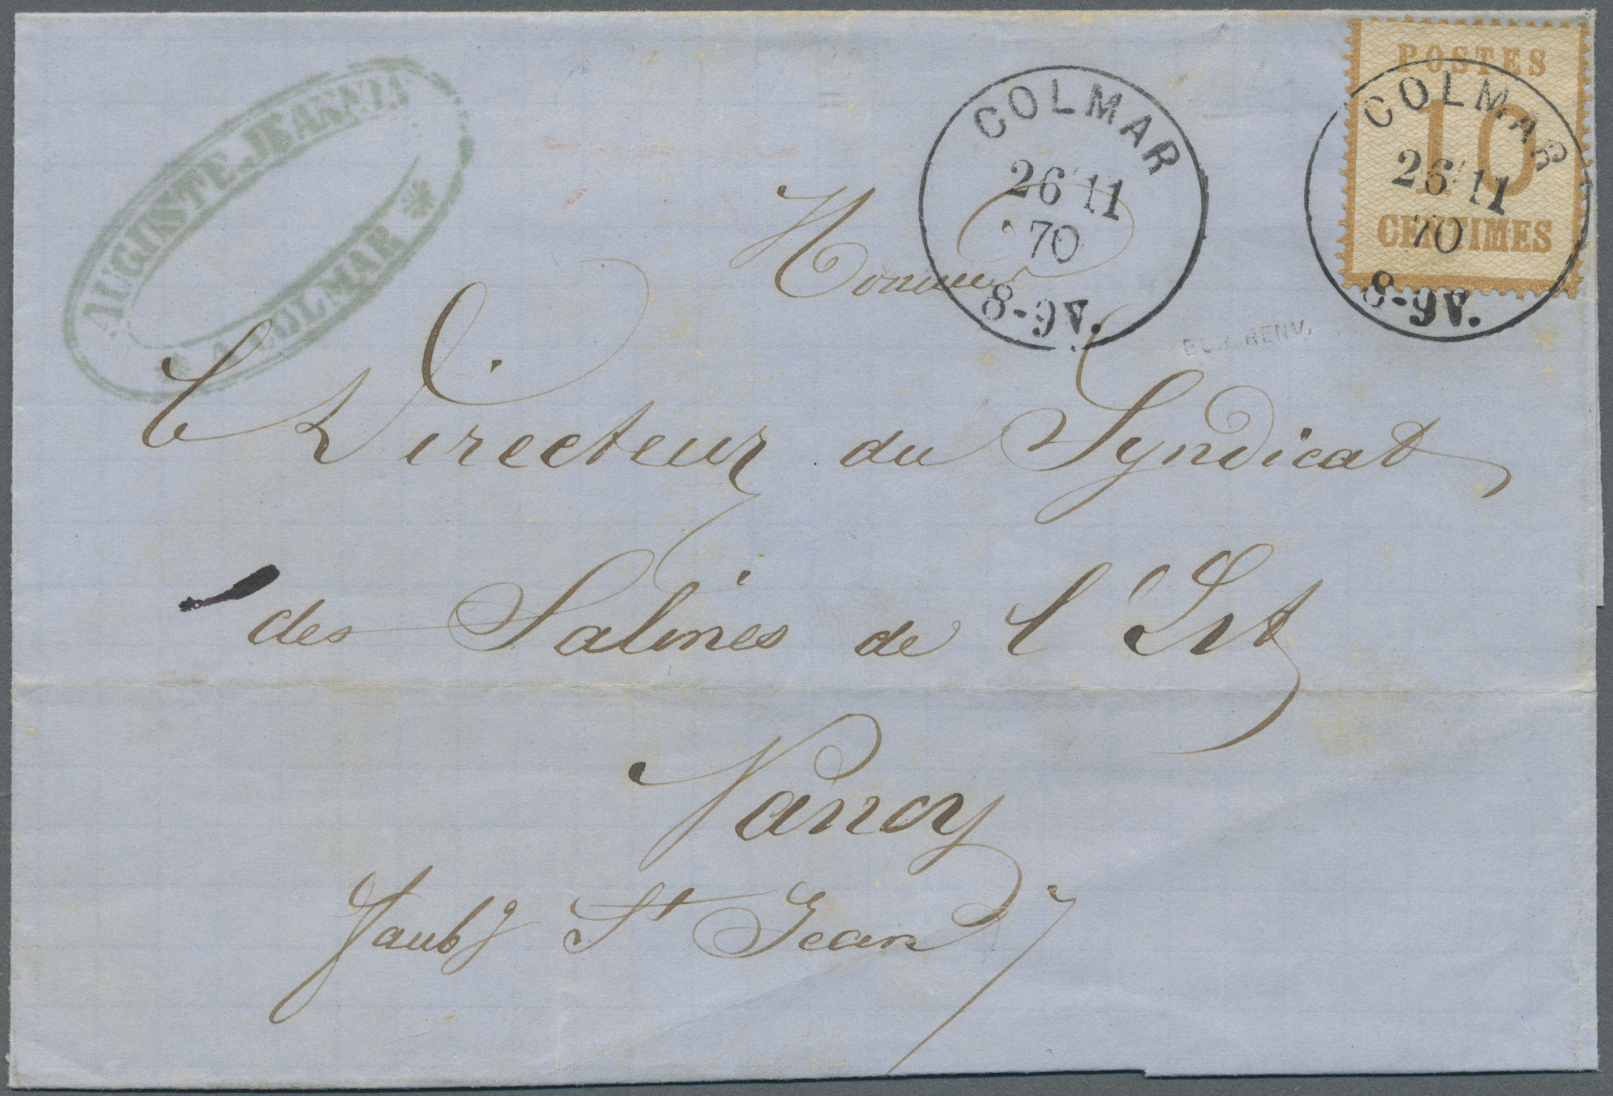 AUGUSTE JEANNIN
* A COLMAR *
COLMAR
26 11
70
8-9V.
POSTES
10
CENTIMES
COLMAR
26 11
70
8-9V.
BUR. RENV.
Monsieur
le Directeur du Syndicat
des Salines de l'Est
Nancy
Faubg St Jean